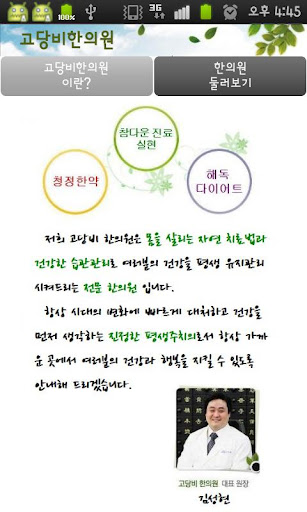 100%
3G
오후 4:45
고당비한의원
고당비한의원
이란?
한의원
둘러보기
참다운 진료
실현
청정한약
해독
다이어트
저희 고당비 한의원은 몸을 살리는 자연 치료법과
건강한 습관관리로 여러분의 건강을 평생 유지관리
시켜드리는 전문 한의원 입니다.
항상 시대의 변화에 빠르게 대처하고 건강을
먼저 생각하는 진정한 평생주치의로서 항상 가까
운 곳에서 여러분의 건강과 행복을 지킬 수 있도록
안내해 드리겠습니다.
고당비 한의원 대표 원장
김성현